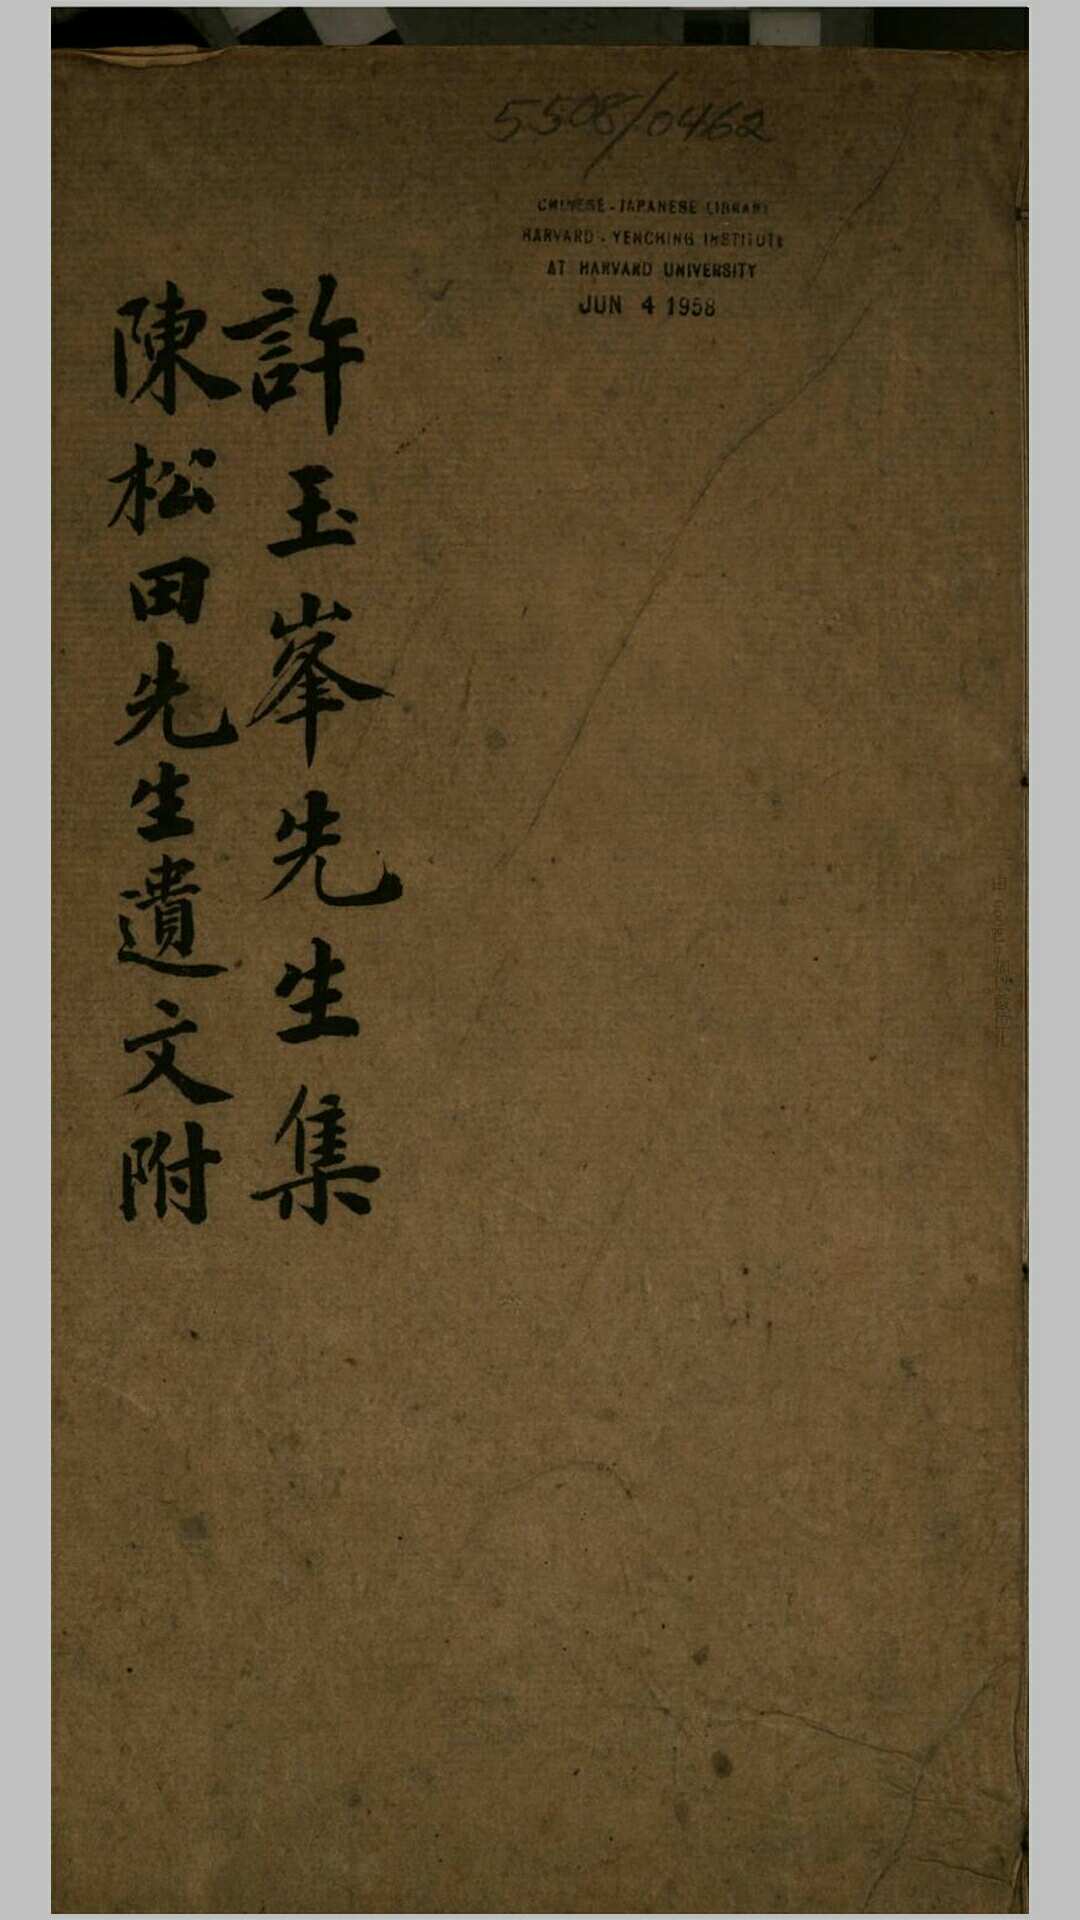 5508/0462
CHINESE-JAPANESE LIBRARY
HARVARD-YENCHING INSTITUTE
AT HARVARD UNIVERSITY
JUN 4 1958
許玉峯先生集
陳松田先生遺文附